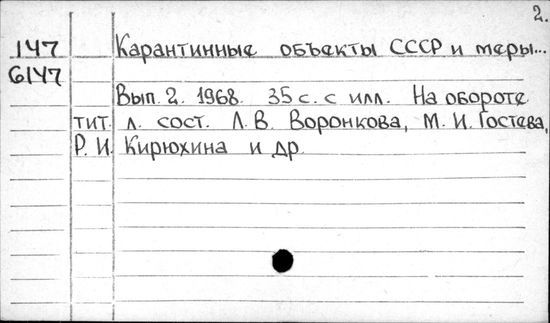 2.
147 Карантинные объекты СССР и меры...
6147
Вып. 2. 1968. 35 с. с илл. На обороте
тит. л. сост. Л. В. Воронкова, М. И. Гостева,
Р. И. Кирюхина и др